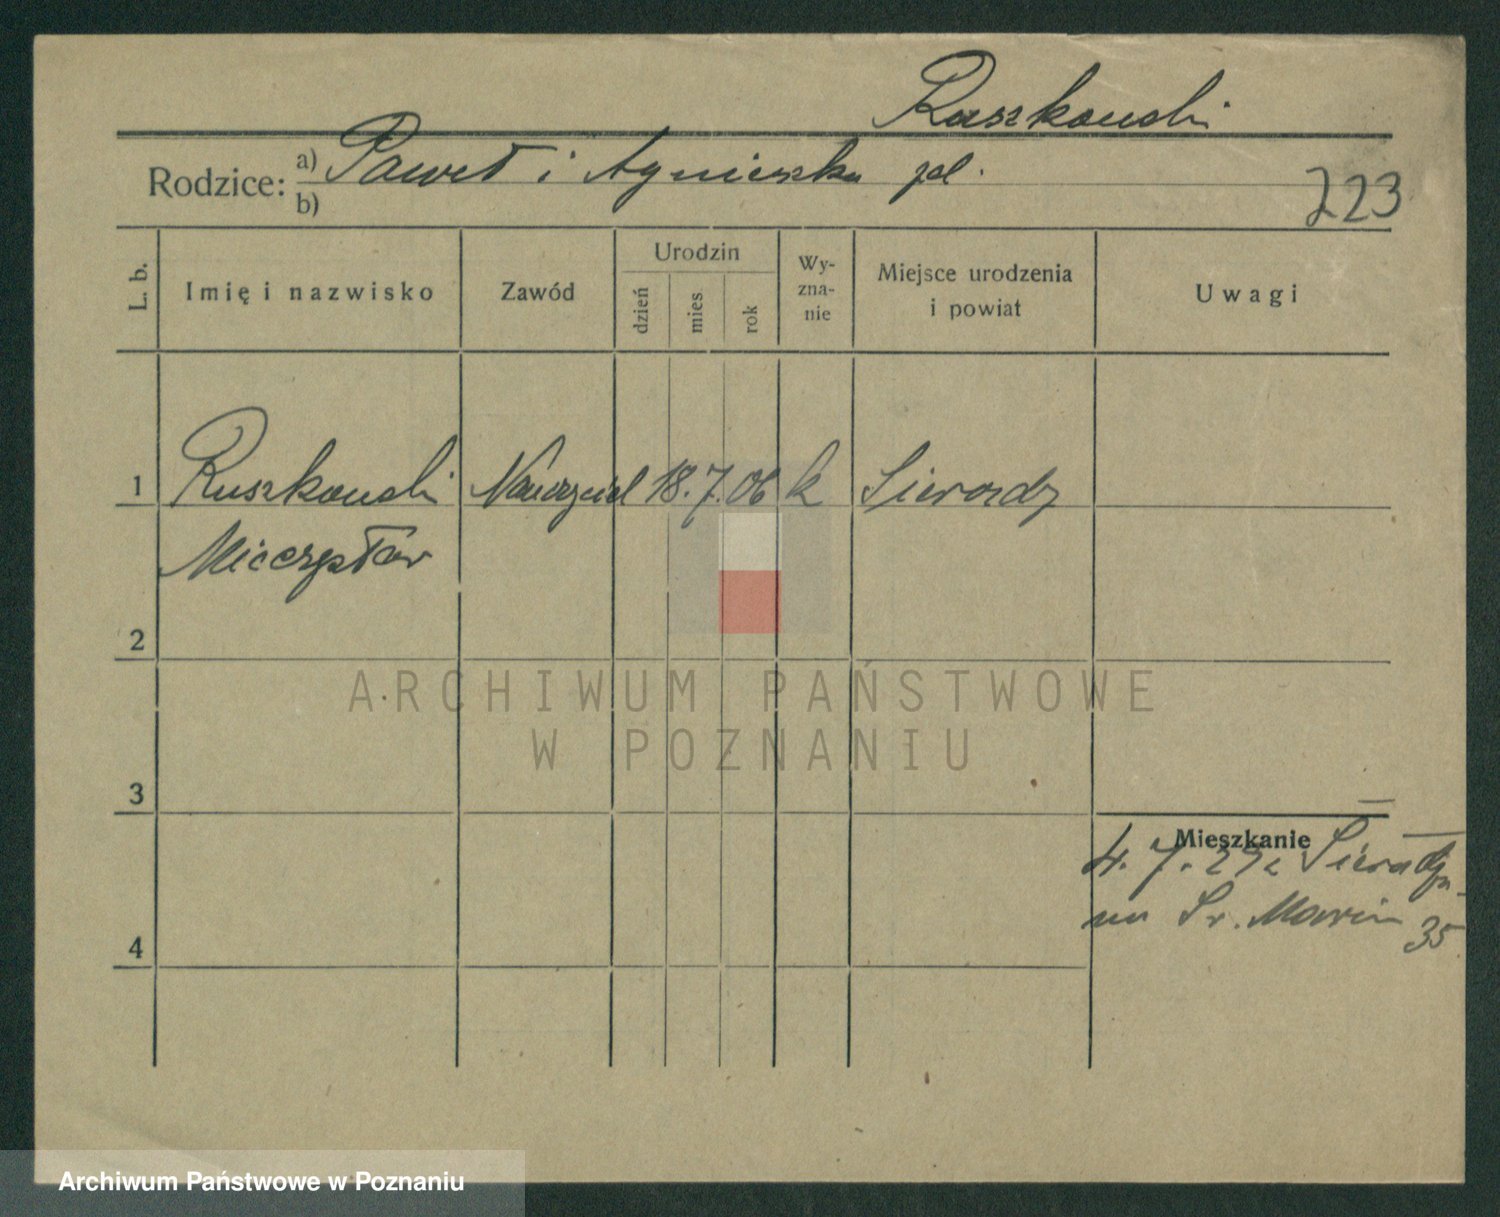 Ruszkowski
Rodzice: a) Paweł i Agnieszka
b)
223
L. b.
Imię i nazwisko
Zawód
Urodzin
dzień
mies
rok
Wy-
zna-
nie
Miejsce urodzenia
i powiat
Uwagi
1 Ruszkowski Nauczyciel 18. 7. 06 k Sieradz
Mieczysław
2
ARCHIWUM PAŃSTWOWE
W POZNANIU
3
Mieszkanie
4. 7. 29 z Sieradza
35
4
Archiwum Państwowe w Poznaniu